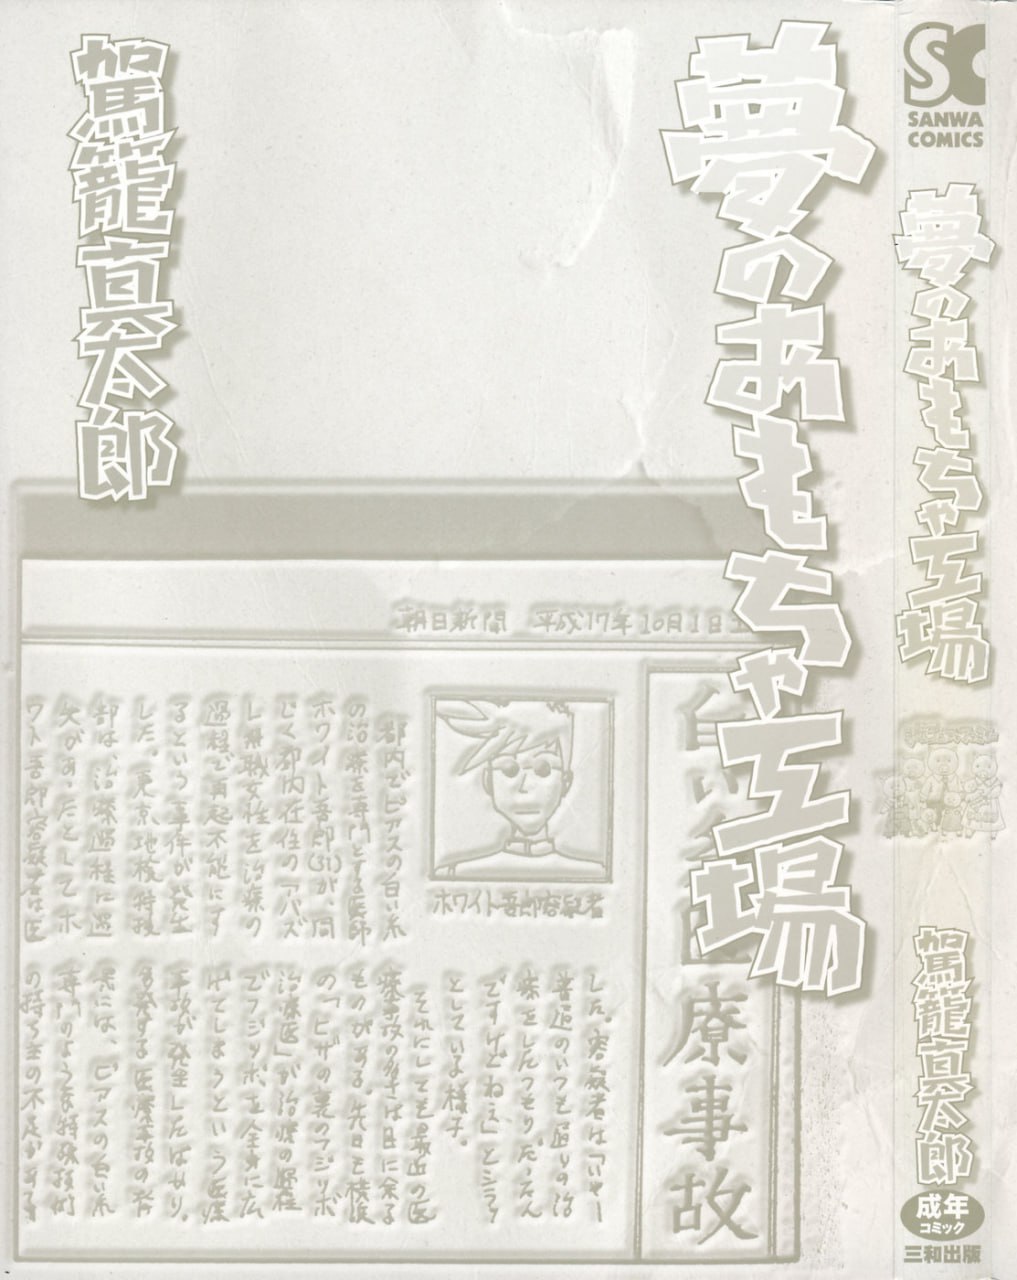 夢のおもちゃ工場
駕籠真太郎
朝日新聞 平成17年10月1日土
白い糸医療事故
ホワイト吾郎容疑者
都内でピアスの白い糸
の治療を専門とする医師
ホワイト吾郎(31)が、同
じく都内在住の「パズ
し無職女性を治療の
過程で再起不能にす
るという事件が発生
した。東京地検特捜
部は、治療過程に過
失があったとしてホ
ワイト吾郎容疑者は医
した。容疑者は「いやー
普通のいつも通りの治
療をしたつもりだったん
ですけどねぇ」とシラッ
としている様子。
それにしても最近の医
療事故の多さは目に余る
ものがある。先日も横浜
の「ヒザの裏のフジツボ
治療医」が治療の過程
でフジツボを全身に広
げてしまうという医療
事故が発生したばかり。
多発する医療事故の背
景には、ピアスの白い糸
専門のような特殊技術
の持ち主の不足がある
SC
SANWA
COMICS
夢のおもちゃ工場
駕籠真太郎
成年
コミック
三和出版